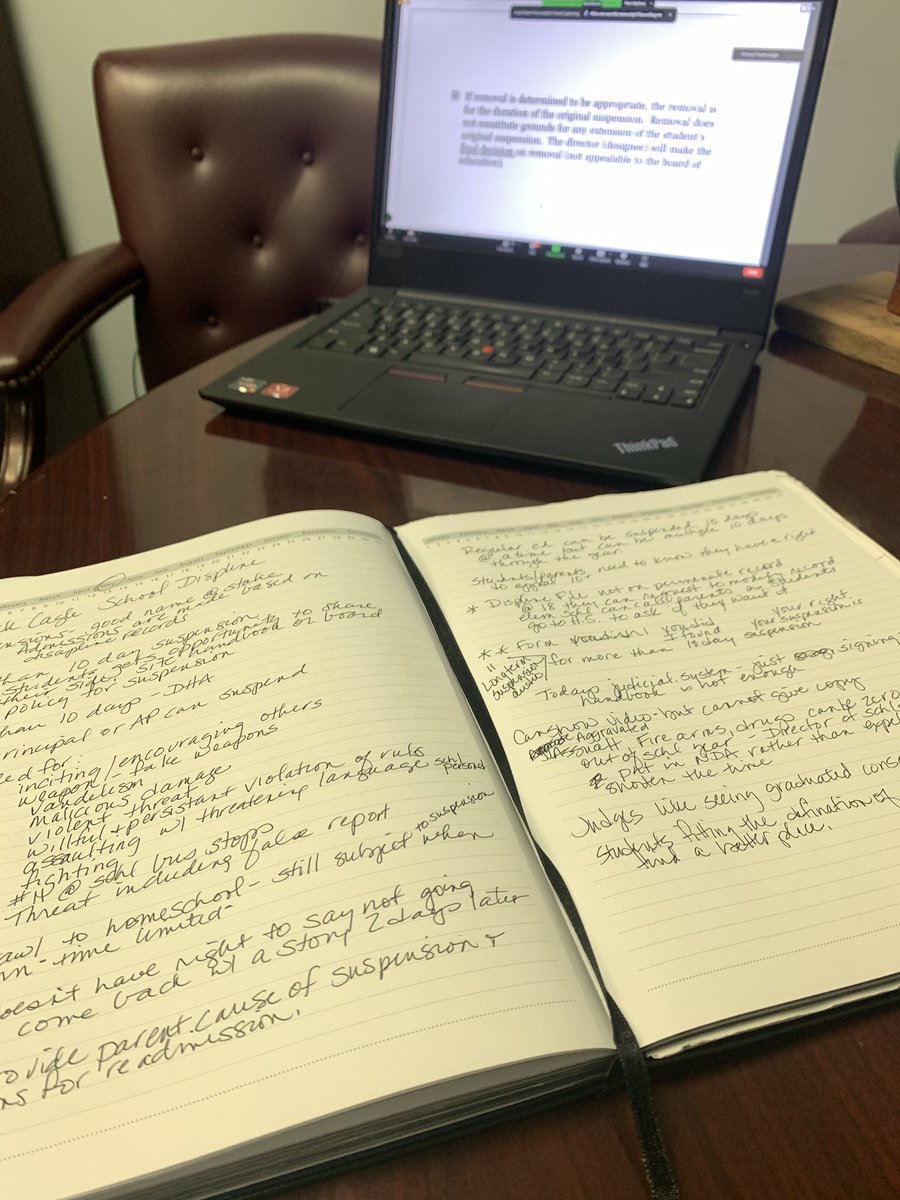 If removal is determined to be appropriate, the removal is
for the duration of the original suspension. Removal does
not constitute grounds for any extension of the student's
original suspension. The director (designee) will make the
final decision on removal (not appealable to the board of
education).
ThinkPad
March April May June July August September October November December
Cagle School Displine
good name @ stake
Admissions are made based on
disaplin records
10 day suspension,
student gets opportunity to share
their side, site handbook or board
policy for suspension
than 10 days - DHA
principal or AP can suspend
for:
inciting/encouraging others
weapon - fake weapons
vandelism
malicious damage
violent threat
willful + persistant violation of ruls
assaulting w/ threatening language schl persond
fighting
#14 @ schl bus stops
Threat including false report
to homeschool - still subject to suspension when
- time limited -
doesn't have right to say not going
come back w/ a story 2 days later
provide parent cause of suspension +
for readmission.
Regular ed can be suspended 10 days
@ a time but can be multiple 10 days
through the year.
Students/parents need to know they have a right
to appeal 10+
* Displine File not on permenate record
@ 18 they can request to modify record
elem schl can call parents as students
go to H.S. to ask if they want it
** Form I you did your right
I found your suspension is
for more than 10 day suspension
"Longterm
suspension
audio
Todays judicial system - just signing
handbook is not enough
Can show video - but cannot give copy
Aggravated
Assualt Fire arms, drugs can be zero
out of schl year - Director of schls
put in NDA rather than
shorten the time
Judges like seeing graduated
students fitting the defination of
find a better place.